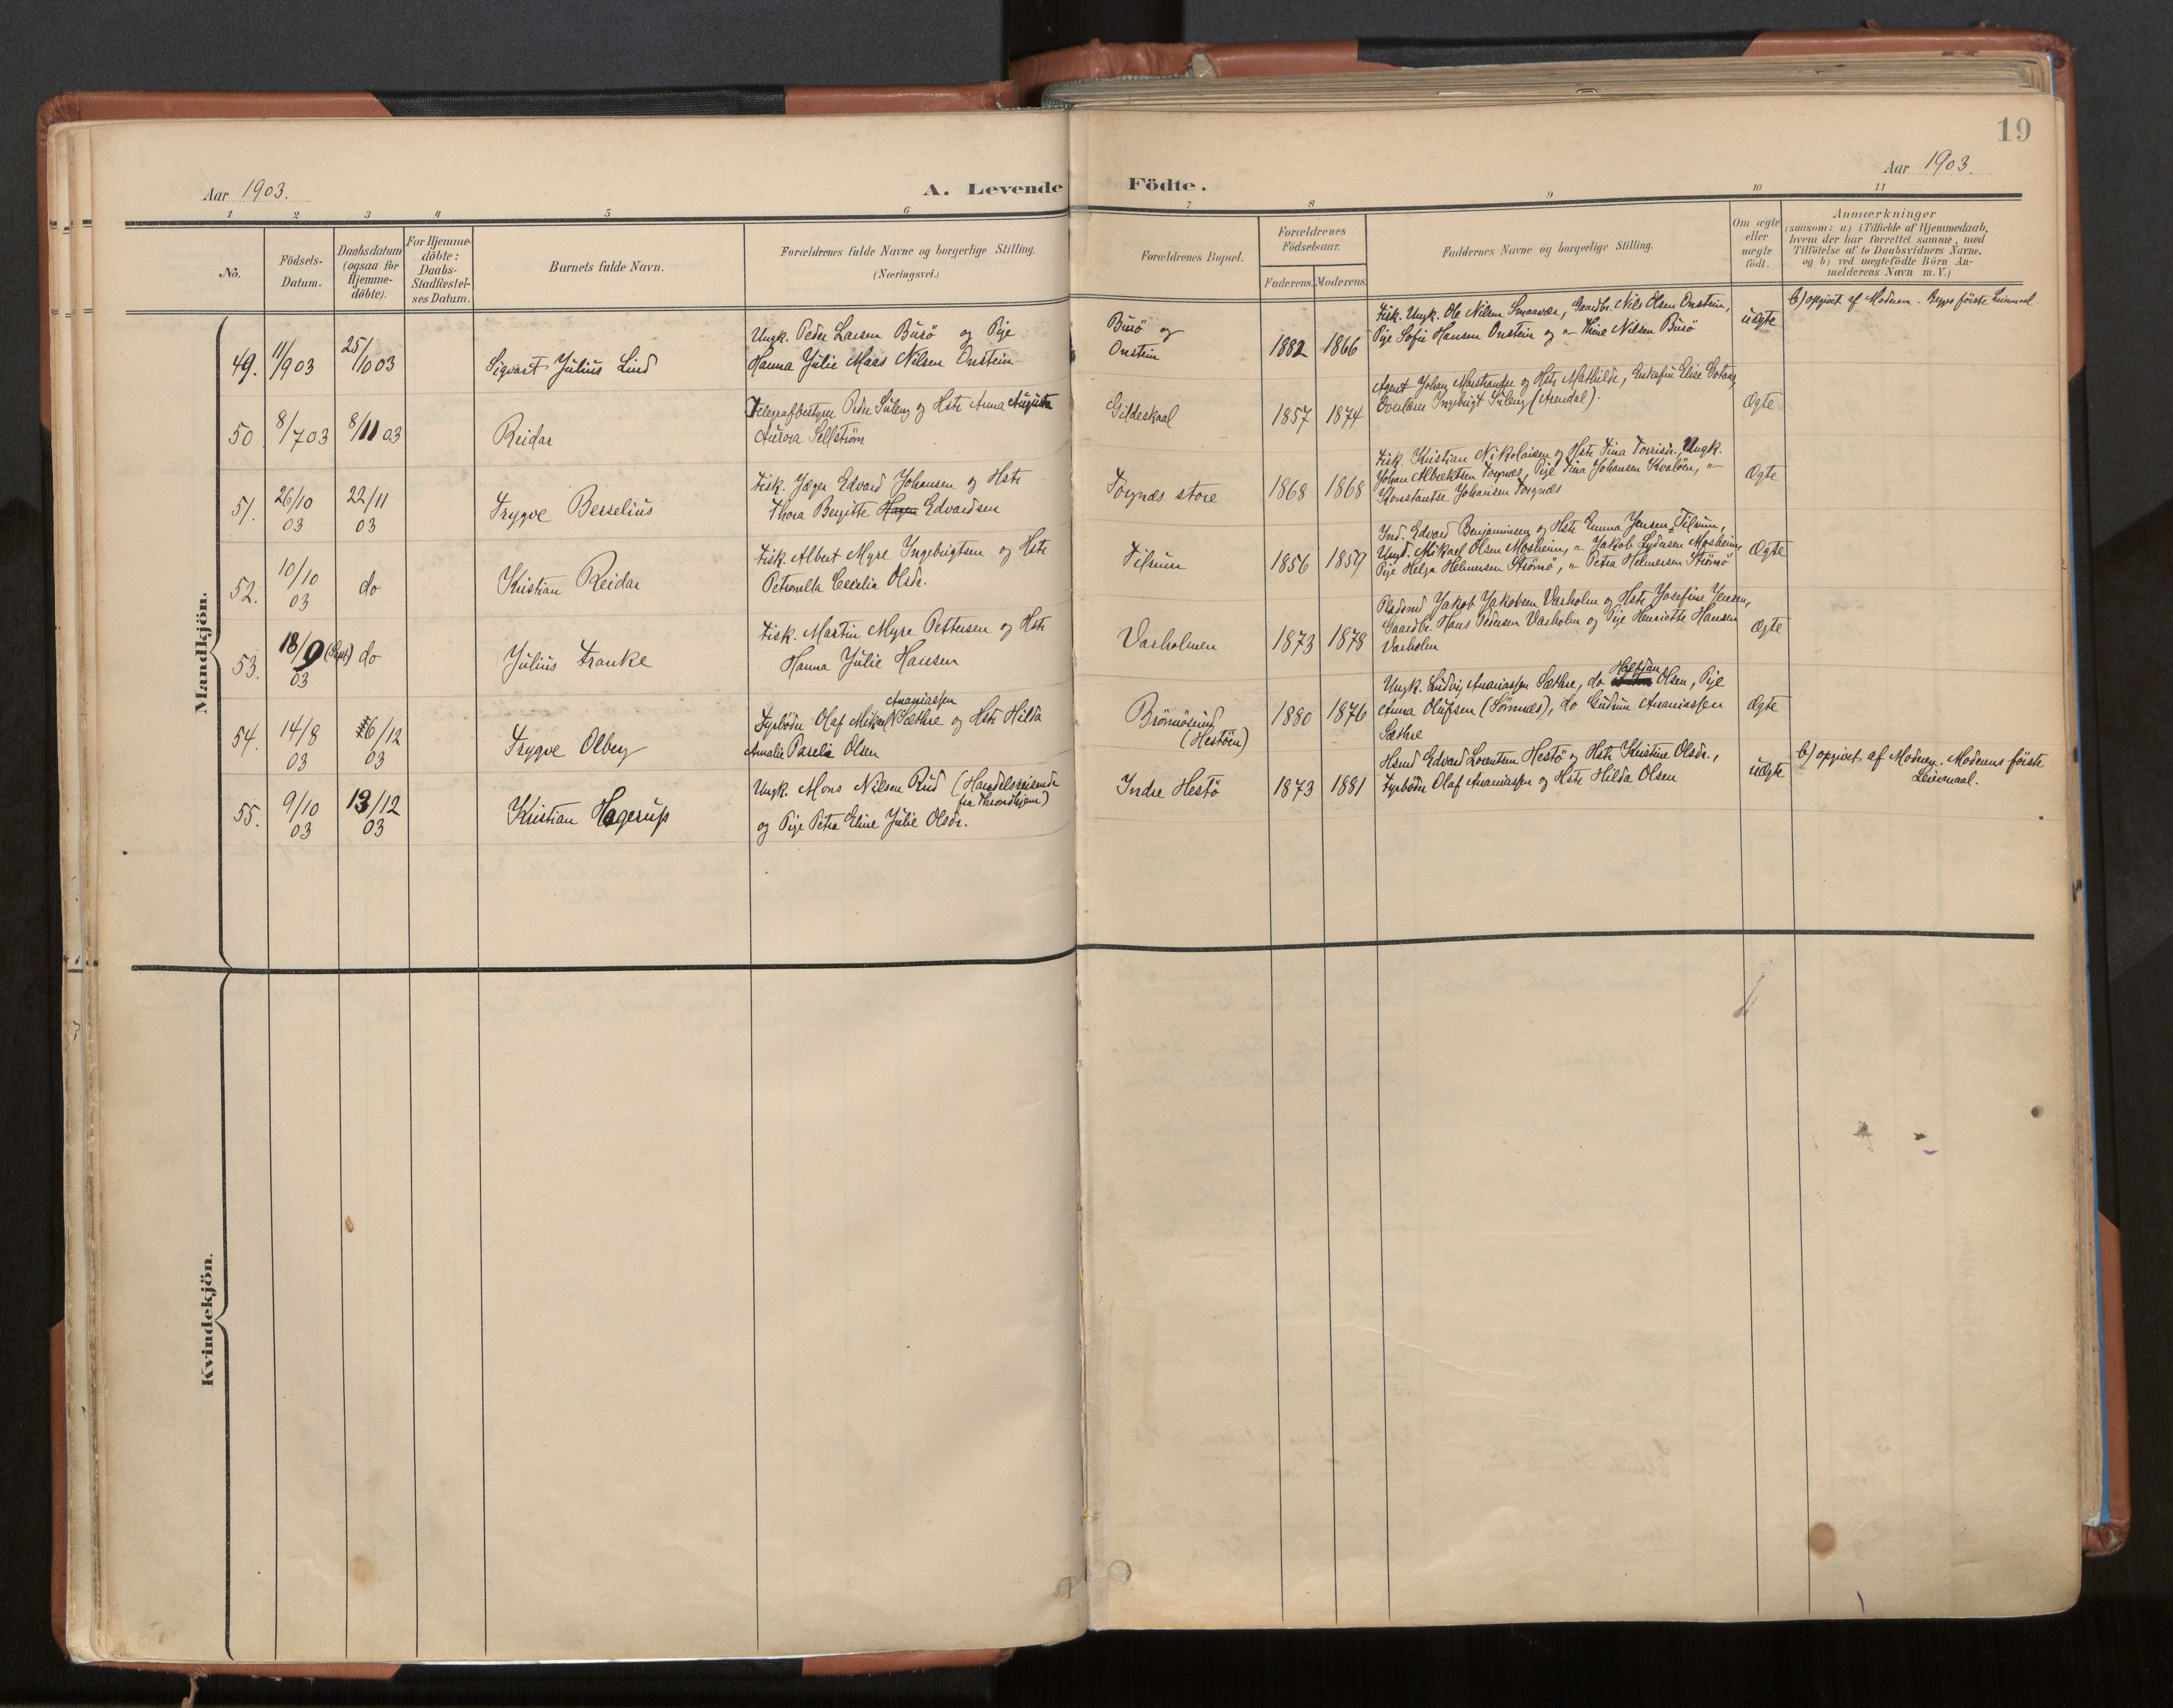 19
Aar 1903.
A. Levende Födte.
Aar 1903.
1 2 3 4 5 6 7 8 9 10 11
No.
Födsels-Datum.
Daabsdatum (ogsaa for Hjemme-döbte).
For Hjemme-döbte: Daabs-Stadfæstel-ses Datum.
Barnets fulde Navn.
Forældrenes fulde Navne og borgerlige Stilling.
(Næringsvei.)
Forældrenes Bopæl.
Forældrenes Födselsaar.
Faderens. Moderens.
Faddernes Navne og borgerlige Stilling.
Om ægte eller uægte födt.
Anmærkninger
(saasom: a) i Tilfælde af Hjemmedaab,
hvem der har forrettet samme, med
Tilföielse af to Daabsvidners Navne.
og b) ved uægtefödte Börn An-
melderens Navn m. V.)
Mandkjön.
49. 11/9 03 25/10 03 Sigvart Julius Lind
Ungk. Peder Larsen Burö og Pige
Hanna Julie Maas Nilsen Onstein
Burö og
Onstein
1882 1866
Fisk. Ungk. Ole Nilsen Smaavær, Gaardbr. Nils Olsen Onstein,
Pige Sofie Hansen Onstein og "– Thine Nilsen Burö
uægte
b) opgivet af Moderen. Begges förste Leiermaal
50. 8/7 03 8/11 03 Reidar
Telegrafbestyrer Peder Süleng og Hstr Anna Augusta
Aurora Sellström
Gildeskaal
1857 1874
Agent Johan Marstrander og Hstr Mathilde, Enkefru Elise
Overlærer Ingebrigt Süleng (Arendal).
Ægte
51. 26/10 03 22/11 03 Trygve Berselius
Fisk. Jæger Edvard Johansen og Hstr
Thora Bergitte Hagen Edvardsen
Torgnæs store
1868 1868
Fisk. Kristian Nikolaisen og Hstr Tina Torrisdr., Ungk.
Johan Albrektsen Torgnæs, Pige Tina Johansen Kvalöen, "–
Konstantse Johansen Torgnæs
Ægte
52. 10/10 03 do Kristian Reidar
Fisk. Albert Myre Ingebrigtsen og Hstr
Petronella Cecilia Olsdr.
Tilrum
1856 1859
Ind. Edvard Benjaminsen og Hstr Emma Jensen Tilrum,
Ungk. Mikael Olsen Mosheim, "– Jakob Lydersen Mosheim,
Pige Helga Helmersen Strömö, "– Petra Helmersen Strömö
Ægte
53. 18/9 (Sept) 03 do Julius Franke
Fisk. Martin Myre Pettersen og Hstr
Hanna Julie Hansen
Varholmen
1873 1878
Pladsmd Jakob Jakobsen Varholm og Hstr Josefine Jensen,
Gaardbr. Hans Pedersen Varholm og Pige Henriette Hansen
Varholm
Ægte
54. 14/8 03 6/12 03 Trygve Olberg
Ananiassen
Fyrböder Olaf Mikael Sæthre og Hstr Hilda
Amalie Parelia Olsen
Brönnösund
(Hestöen)
1880 1876
Halfdan
Ungk. Ludvig Ananiassen Sæthre, do Olsen, Pige
Anna Olufsen (Sömnæs), do Gudrun Ananiassen
Sæthre
Ægte
55. 9/10 03 13/12 03 Kristian Hagerup
Ungk. Mons Nilsen Rud (Handelsreisende
fra Throndhjem)
og Pige Petra Eline Julie Olsdr.
Indre Hestö
1873 1881
Hsmd Edvard Lorentsen Hestö og Hstr Kristine Olsdr.,
Fyrböder Olaf Ananiassen og Hstr Hilda Olsen
uægte
b) opgivet af Moderen. Moderens förste
Leiermaal.
Kvindekjön.